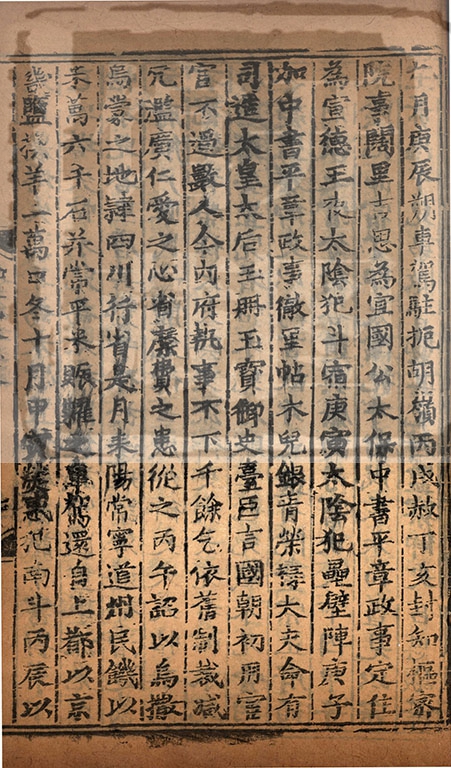 午月庚辰朔車駕駐扼胡嶺丙戌赦丁亥封知樞密
院事闊里吉思為宜國公太保中書平章政事定住
為宣德王夜太陰犯斗宿庚寅太陰犯壘壁陣庚子
加中書平章政事徹里帖木兒銀青榮祿大夫命有
司造太皇太后玉冊玉寶御史臺臣言國朝初用宦
官不過數人今內府執事不下千餘乞依舊制裁减
冗濫廣仁愛之心省縻費之患從之丙午詔以烏撒
烏蒙之地隸四川行省是月耒陽常寧道州民饑以
米萬六千石并常平米賑糶之車駕還自上都以京
畿鹽換羊二萬口冬十月甲寅熒惑犯南斗丙辰以